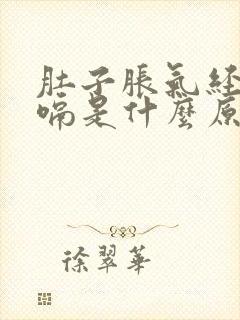 肚子脹氣經
嗝是什麼原
徐翠華